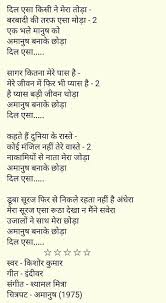 दिल एसा किसी ने मेरा तोड़ा -
बरबादी की तरफ एसा मोड़ा - 2
एक भले मानुष को
अमानुष बनाके छोड़ा
दिल एसा.....
सागर कितना मेरे पास है -
मेरे जीवन में फिर भी प्यास है - 2
है प्यास बड़ी जीवन थोड़ा
अमानुष बनाके छोड़ा
दिल एसा.....
कहते हैं दुनिया के रास्ते -
कोई मंजिल नहीं तेरे वास्ते - 2
नाकामियों से नाता मेरा जोड़ा
अमानुष बनाके छोड़ा
दिल एसा.....
डूबा सूरज फिर से निकले रहता नहीं है अंधेरा
मेरा सूरज एसा रूठा देखा न मैंने सवेरा
उजालों ने साथ मेरा छोड़ा
अमानुष बनाके छोड़ा
दिल एसा.....
स्वर - किशोर कुमार
गीत - इंदीवर
संगीत - श्यामल मित्रा
चित्रपट - अमानुष (1975)